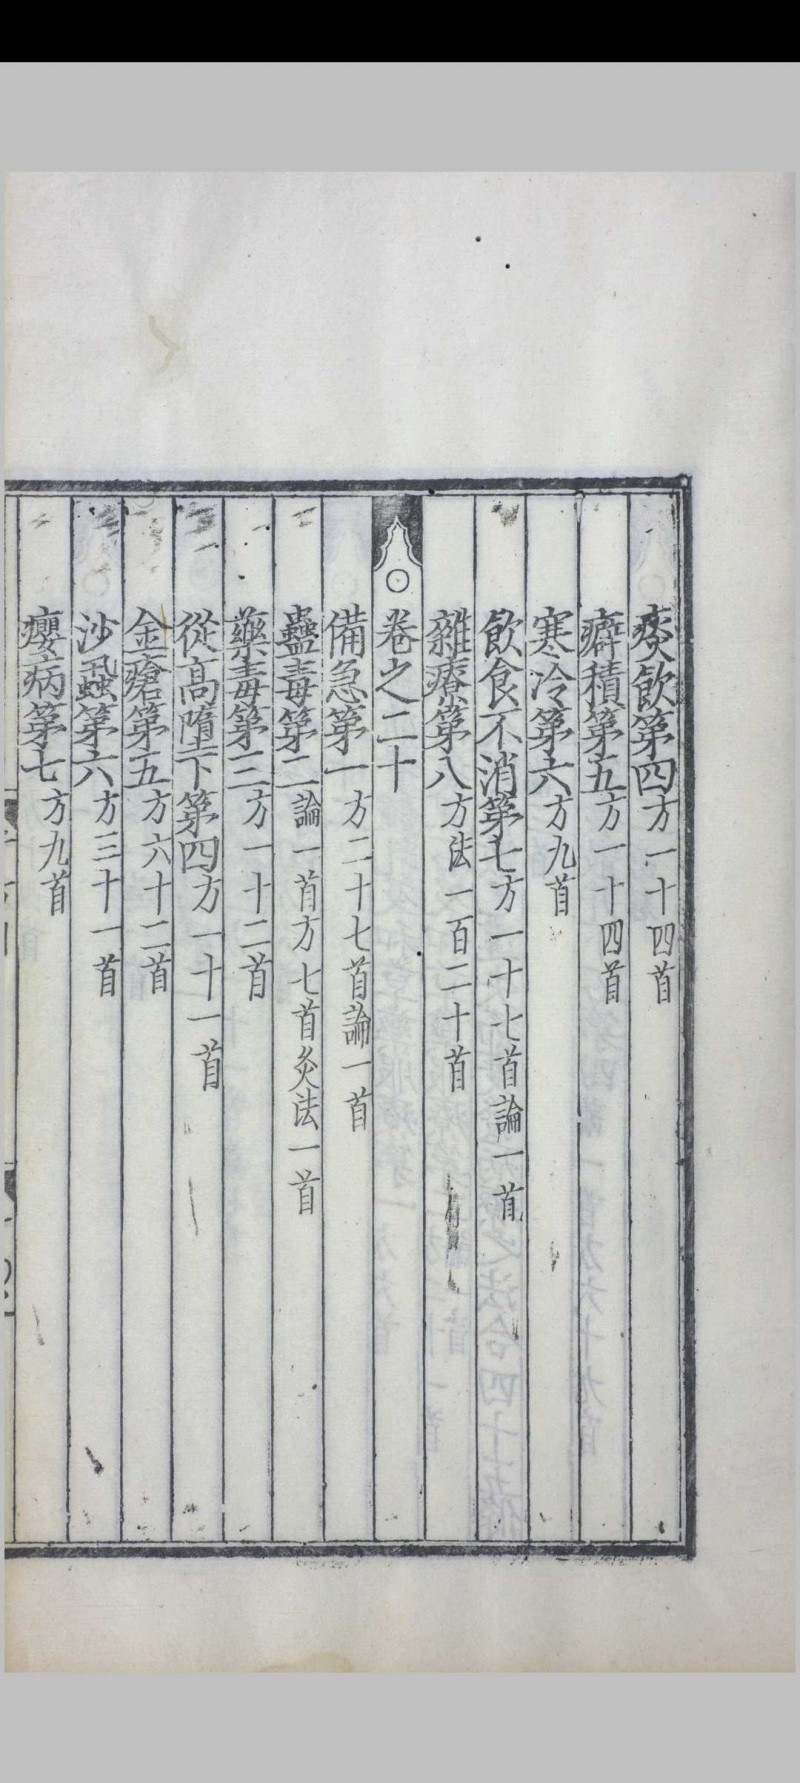 痰飲第四方一十四首
癖積第五方一十四首
寒冷第六方九首
飲食不消第七方一十七首論一首
雜療第八方法一百二十首
卷之二十
備急第一方二十七首論一首
蠱毒第二論一首方七首灸法一首
藥毒第三方一十二首
從高墮下第四方一十一首
金瘡第五方六十二首
沙虱第六方三十一首
癭病第七方九首